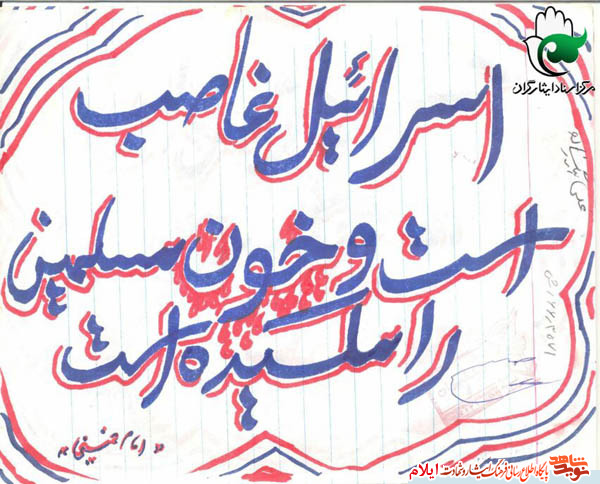 مرکز اسناد ایثارگران
اسرائیل غاصب
است و خون مسلمین
را مکیده است
«امام خمینی»
نوید شاهد پایگاه اطلاع رسانی فرهنگ ایثار و شهادت ایلام